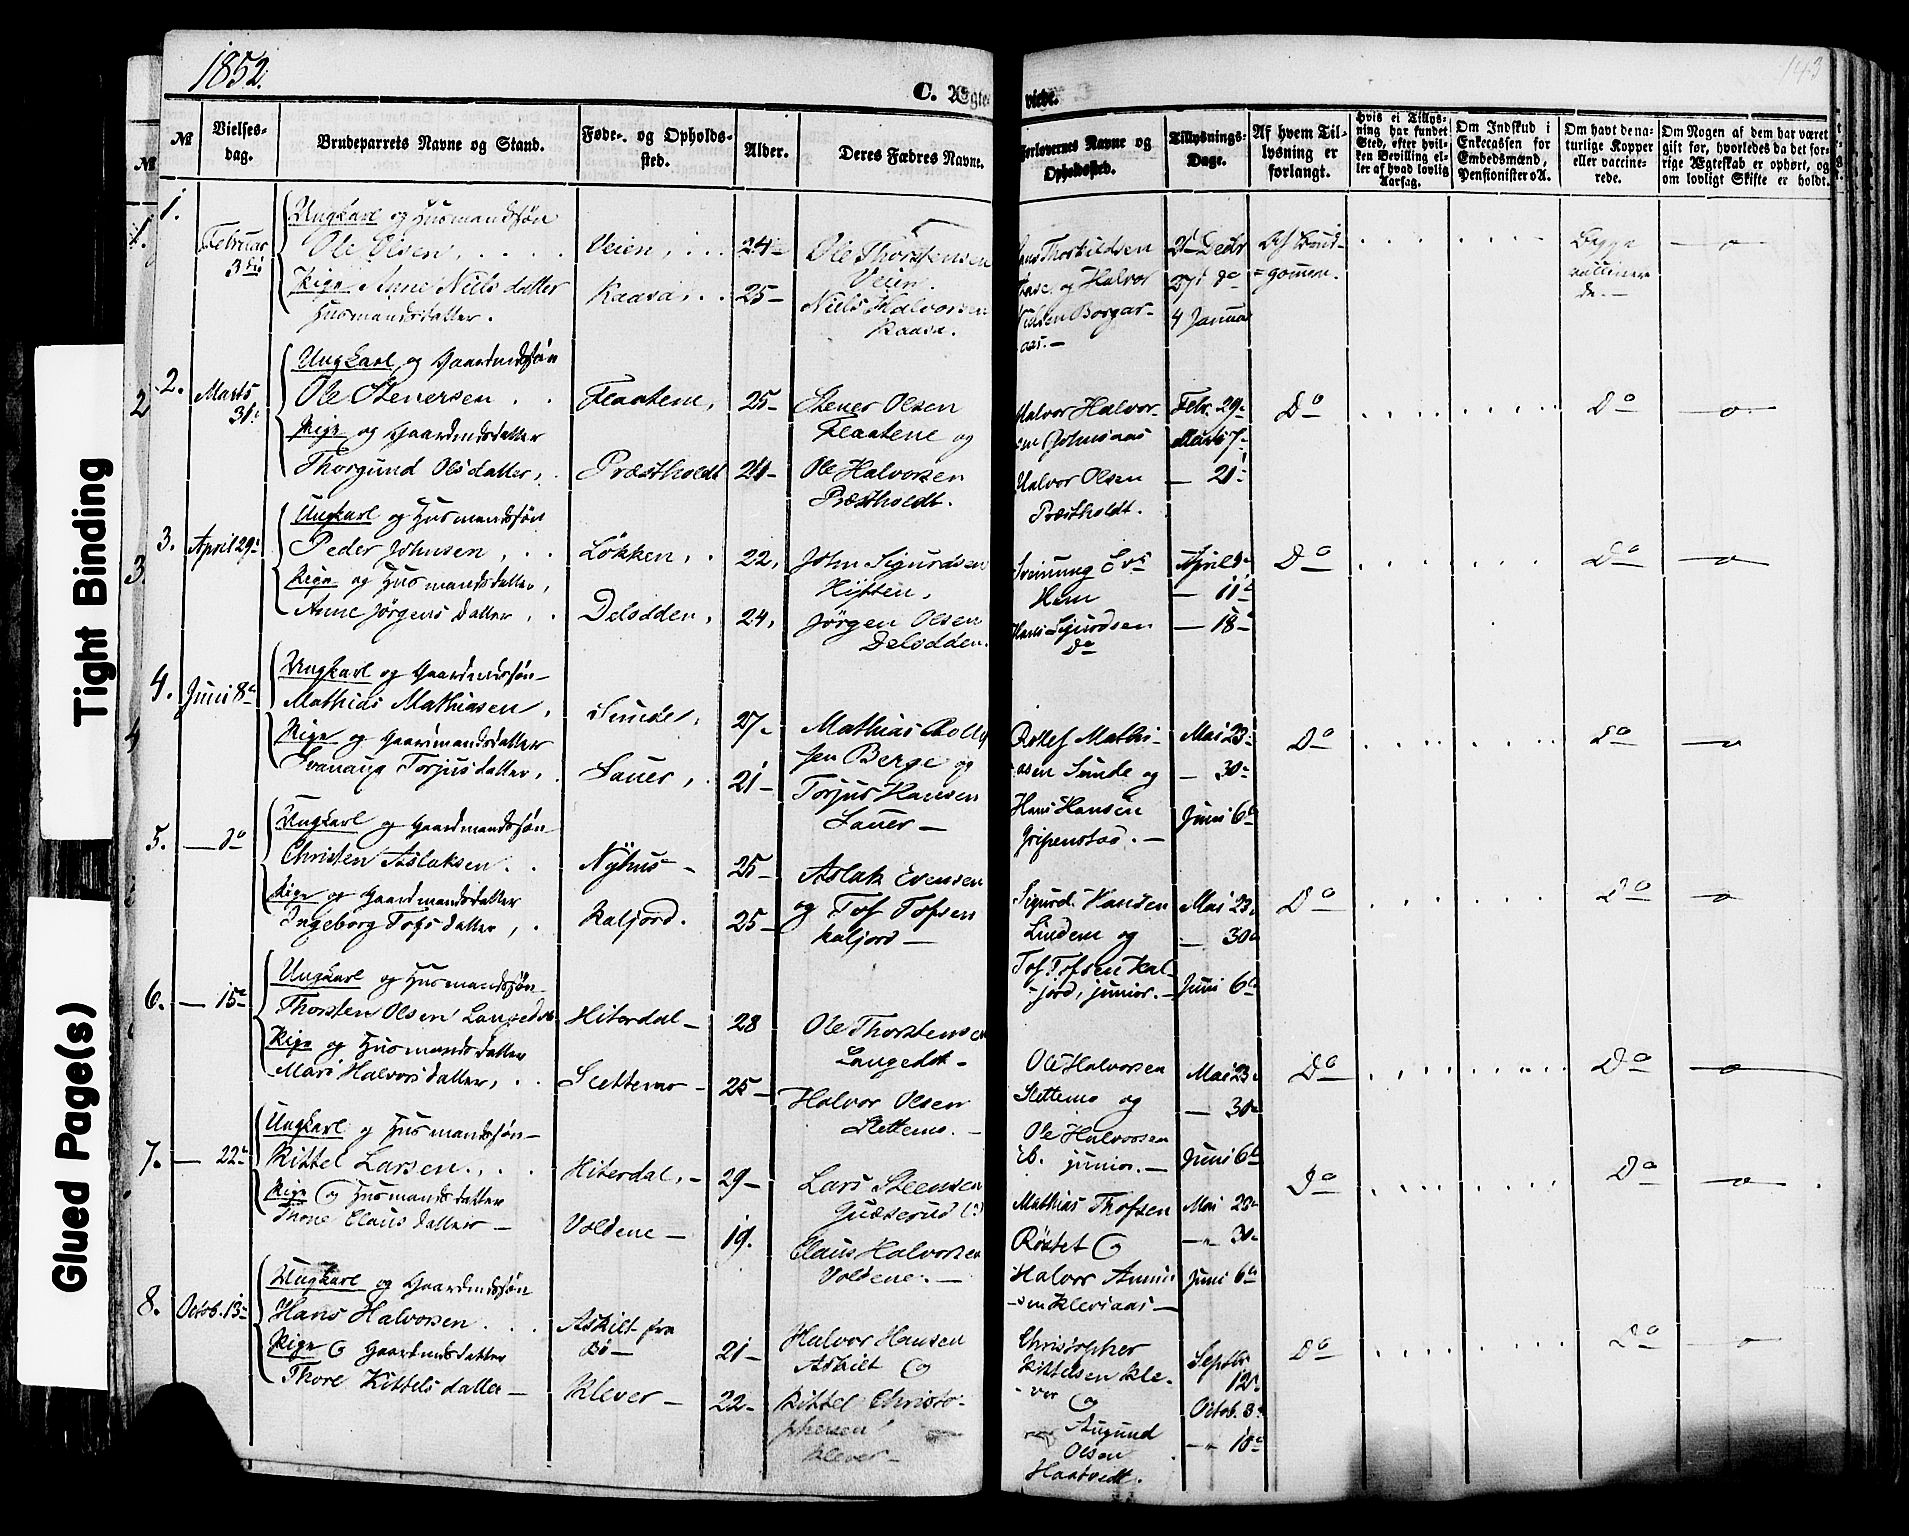 1852.
143
C. Ægte
viede.
№
№
Vielses-
dag.
Brudeparrets Navne og Stand.
Føde- og Opholds-
sted.
Alder.
Deres Fædres Navne.
Forlovernes Navne og
Opholdssted.
Tillysnings-
Dage.
Af hvem Til-
lysning er
forlangt.
Hvis ei Tillys-
ning har fundet
Sted, efter hvil-
ken Bevilling el-
ler af hvad lovlig
Aarsag.
Om Indskud i
Enkecassen for
Embedsmænd,
Pensionister o. A.
Om havt de na-
turlige Kopper
eller vaccine-
rede.
Om Nogen af dem har været
gift før, hvorledes da det for-
rige Ægteskab er ophørt, og
om lovligt Skifte er holdt.
1.
1.
Februar
3die
Ungkarl og Husmandssøn
Ole Olsen,
Pige Anne Niels datter
Husmandsdatter.
Veien,
Kaasa,
24-
25-
Ole Thorstensen
Veien.
Niels Halvorsen
Kaasa.
Thorkildsen
og Halvor
Nielsen Borgar-
aas.-
Decbr
27 do
4 Januar
Af Brud-
gommen.
Begge
vaccinere
de.-
2
2.
Marts
31.
Ungkarl og Gaardmdssøn
Ole Stenersen
Pige og Gaardmdsdatter
Thorgund Olsdatter,
Flaatene,
Præstholdt
25-
24-
Stener Olsen
Flaatene og
Ole Halvorsen
Præstholdt.
Halvor Halvor-
sen Johnsaas
Halvor Olsen
Præstholdt.
Febr. 29
Marts 7
- 21
Do
Do
3.
3.
April 29
Ungkarl og Husmandssøn
Peder Johnsen,
Pige og Husmandsdatter,
Anne Jørgens datter,
Løkken,
Delsdden,
22,
24,
John Sigurdsen
Jørgen Olsen
Delsdden.
Sveinung
Hem
Hans Sigurdsen
Do
April
- 11
- 18
Do
Do
4
4.
Juni 8
Ungkarl og Gaardmdssøn
Mathias Mathiasen,
Pige og Gaardmandsdatter
Svanaug Torjusdatter,
Sunde,
Sauer,
27-
21-
Mathias
sen Berge og
Torjus Hansen
Sauer -
Detlef Mathi-
asen Sunde og
Hans Hansen
Gripenstad.-
Mai 23
- 30
Juni 6
Do
Do
5.
- do
Ungkarl og Gaardmandssøn
Christen Aslaksen
Pige og Gaardmandsdatter
Ingeborg Tofsdatter,
Nyhus-
Kaljord.
25-
25-
Aslak Evensen
og Tof Tofsen
Kaljord-
Sigurd Hansen
Lindem og
Tof Tofsen Kal-
jord, junior.-
Mai 23
- 30
Juni 6
Do
Do
6.
- 15
Ungkarl og Husmandssøn
Thorsten Olsen
Pige og Husmandsdatter
Mari Halvorsdatter,
Hiterdal-
Slettemo-
28
25-
Ole Thorstensen
Halvor Olsen
Slettemo.-
Ole Halvorsen
Slettemo og
Ole Halvorsen
ib. junior.-
Mai 23
- 30
Juni 6
Do
Do
7.
- 22
Ungkarl og Husmandssøn-
Kittel Larsen
Pige og Husmandsdatter
Thone Clausdatter-
Hiterdal,-
Voldene-
29-
19.
Lars Steensen
Claus Halvorsen
Voldene.-
Mathias Thofsen
og
Halvor
-sen Kleviaas-
Mai 23
- 30
Juni 6
Do
Do
8.
Octob. 13
Ungkarl og Gaardmdssøn
Hans Halvorsen
Pige og Gaardmdsdatter
Thore Kittelsdatter-
Askilt fra
Bø-
Klever-
21-
22-
Halvor Hansen
Askilt og
Kittel Christo-
phersen
Klever-
Christopher
Kittelsen Kle-
ver og
Augund
Olsen
Haatvedt.
Septbr
12
Octob. 3
- 10
Do
Do
Tight Binding
Glued Page(s)